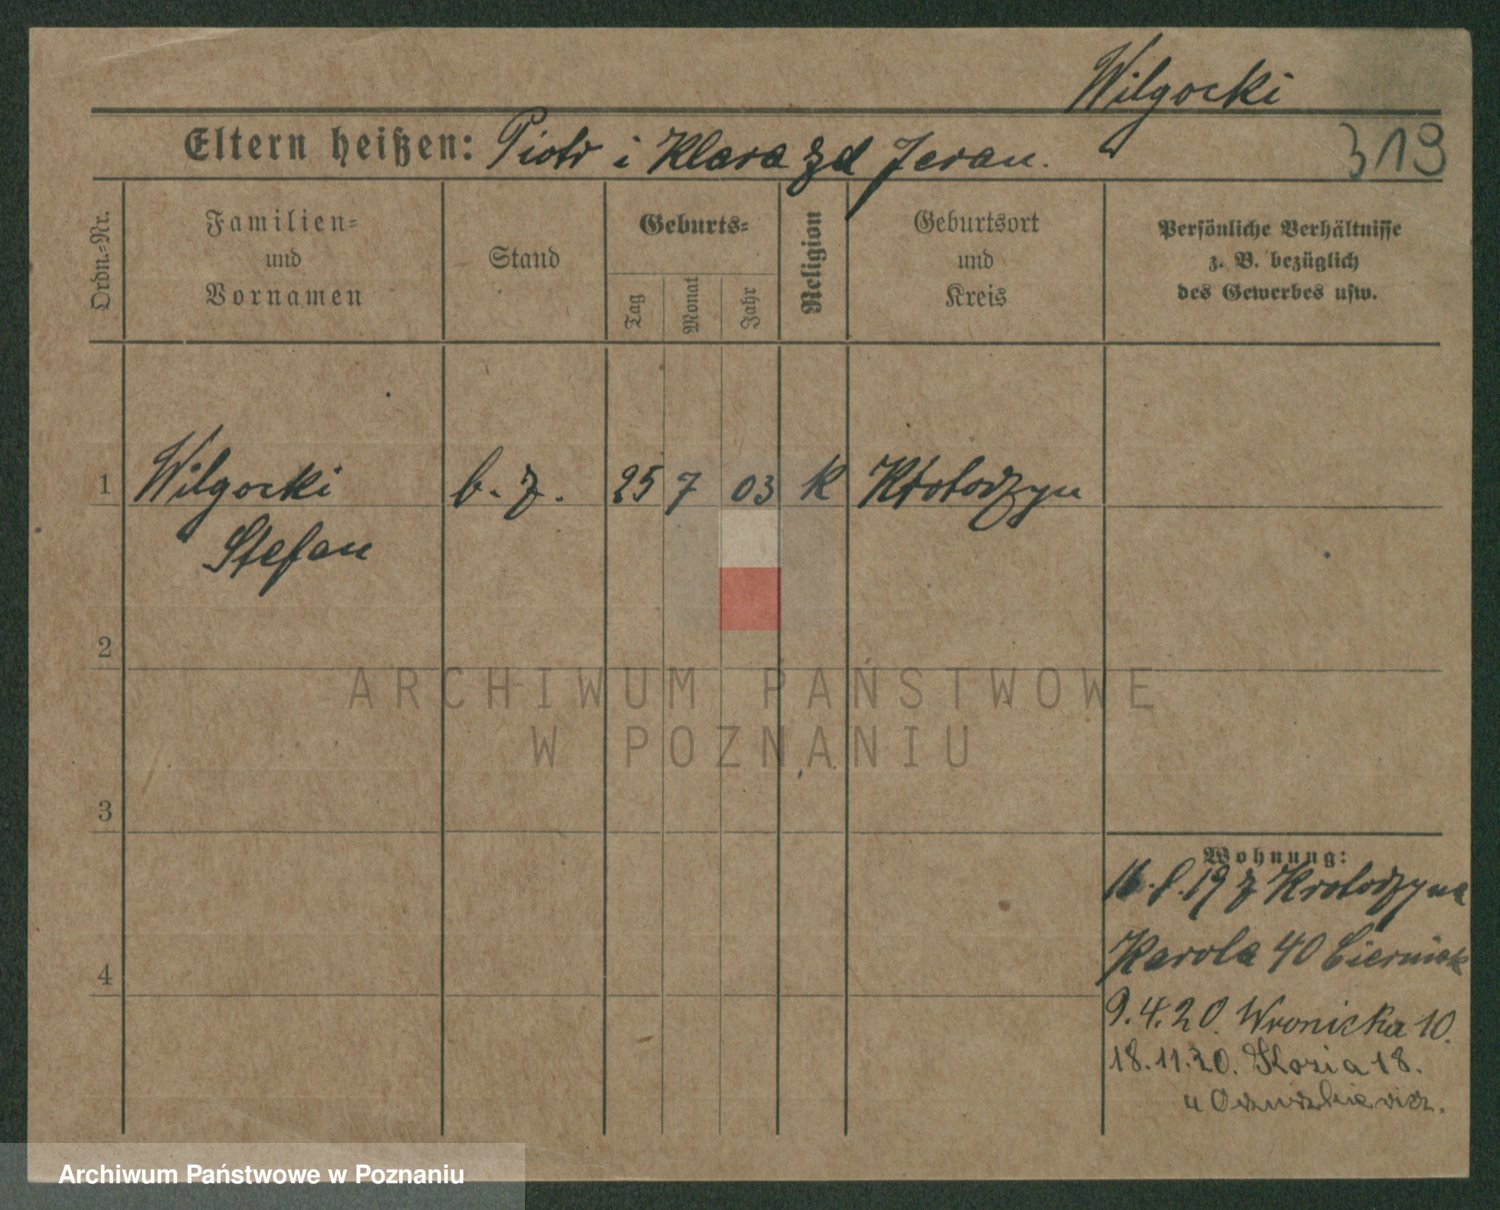 Wilgocki
Eltern heißen: Piotr i Klara zd Jeran.
319
Ordn.-Nr.
Familien-
und
Vornamen
Stand
Geburts-
Tag
Monat
Jahr
Religion
Geburtsort
und
Kreis
Persönliche Verhältnisse
z. B. bezüglich
des Gewerbes usw.
1 Wilgocki b. z. 25 7 03 K Krotodzyn
Stefan
2
3
4
Wohnung:
16.8.19 z Krotodzyna
Karola 40
9.4.20. Wronicka 10.
18.11.20. Kozia 18.
ARCHIWUM PAŃSTWOWE
W POZNANIU
Archiwum Państwowe w Poznaniu